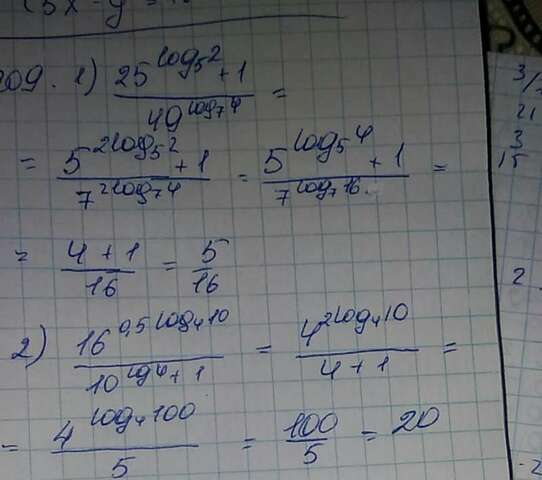 209. 1) (25^(log₅2) + 1) / 49^(log₇4) =
= (5^(2log₅2) + 1) / 7^(2log₇4) = (5^(log₅4) + 1) / 7^(log₇16) =
= (4 + 1) / 16 = 5/16
2) 16^(0,5 log₄10) / (10^(lg4) + 1) = 4^(2log₄10) / (4 + 1) =
= 4^(log₄100) / 5 = 100/5 = 20
21
3
15
2